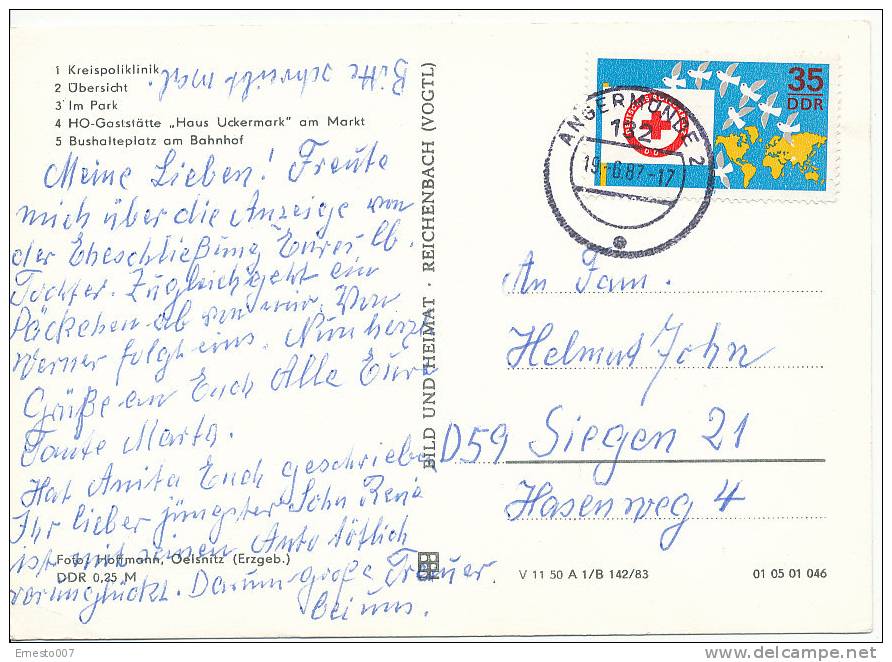 1 Kreispoliklinik
2 Übersicht
3 Im Park
4 HO-Gaststätte „Haus Uckermark" am Markt
5 Bushalteplatz am Bahnhof
Bitte schreibt mal.
Meine Lieben! Freute
mich über die Anzeige von
der Eheschließung Eurer lb.
Tochter. Zugleich geht ein
Päckchen ab von mir. Von
Werner folgt eins. Nun herzl
Grüße an Euch Alle Eure
Tante Marta.
Hat Anita Euch geschrieben
Ihr lieber jüngster Sohn René
ist mit seinen Auto tötlich
verunglückt. Darum große Trauer
bei uns.
Foto: Hoffmann, Oelsnitz (Erzgeb.)
DDR 0,25 M
BILD UND HEIMAT · REICHENBACH (VOGTL)
35
DDR
ANGERMÜNDE 2
132
19.-6.87-17
An Fam.
Helmut John
D59 Siegen 21
Hasenweg 4
V 11 50 A 1/B 142/83
01 05 01 046
Ernesto007
delcampe.net